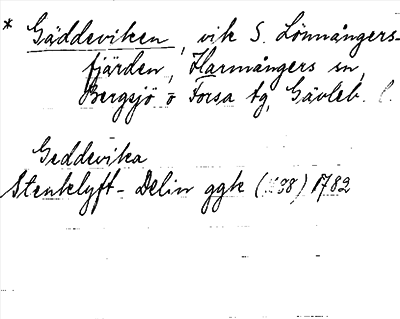 * Gäddeviken, vik S. Lönnångers-
fjärden, Harmångers sn,
Bergsjö o Forsa tg, Gävleb. l.
Geddevika
Stenklyft - Delin ggk ( 38) 1782